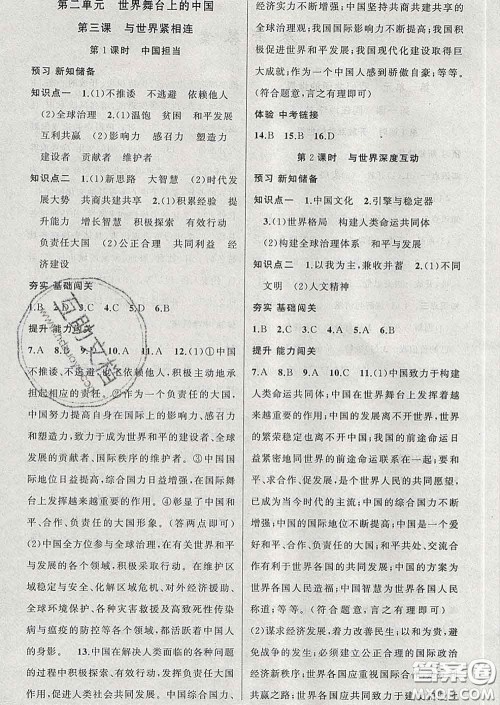 第二单元 世界舞台上的中国
第三课 与世界紧相连
第1课时 中国担当
预习 新知储备
知识点一 1.(1)不推诿 不逃避 依赖他人
(2)全球治理 2.(1)温饱 贫困 和平发展
互利共赢 (2)影响力 感召力 塑造力
建设者 贡献者 维护者
知识点二 1.(1)新思路 大智慧 (2)时代发
展大势 共商共建共享 2.(1)积累经验 提
升能力 增长智慧 积极探索 有效行动
负责任大国 (2)公正合理 共同利益 经
济建设
夯实 基础闯关
1.B 2.D 3.C 4.C 5.D 6.B
提升 能力闯关
7.A 8.B 9.A 10.A 11.A 12.(1)①中国
不推诿、不逃避,也不依赖他人,积极主动地承
担起相应的责任。②作为一个负责任的大国,
中国努力提高自身在国际上的影响力、感召力
和塑造力,致力于成为世界和平的建设者、全球
发展的贡献者、国际秩序的维护者。③中国国
际地位日益提高,综合国力日益增强,在国际舞
台上发挥越来越重要的作用。④彰显了中国和
平、合作、负责任的大国形象。(答两点即可)
(2)中国全方位参与全球治理,在有关世界和平
与发展的问题上发挥着重要的作用。在维护区
域与世界安全、化解区域危机、对外经济援助、
全球环境保护、各种人道主义救援、重大传染病
与瘟疫的防控等各个领域,都有中国人的身影。
13.中国在解决人类面临的各种问题的行
动过程中积极探索、有效行动,展现负责任大国
作用,促进人类社会共同发展。中国综合国力、
经济实力不断增强;中国主张共商共建共享的
全球治理观,积极推动构建人类命运共同体;改
革开放以来,我国经济飞速发展,各项建设取得
巨大成就,作为一个中国人感到骄傲自豪;等等。
(符合题意,言之有理即可)
体验 中考链接
14.B 15.B 16.D
第2课时 与世界深度互动
预习 新知储备
知识点一 1.中国文化 2.引擎与稳定器
3.(1)世界格局 构建人类命运共同体
(2)构建全球治理体系 和平与发展
知识点二 1.以我为主,兼收并蓄 2.(1)不同
文明 (2)人文精神
夯实 基础闯关
1.B 2.A 3.C 4.A 5.B 6.B
提升 能力闯关
7.A 8.A 9.A 10.C 11.(1)中国致力于构建
人类命运共同体;中国在世界舞台上发挥着越
来越重要的作用;中国的发展离不开世界,世界
的繁荣稳定也离不开中国;我国的前途命运日
益紧密地同世界的前途命运联系在一起;要和
平、求合作、促发展,是世界人民的共同愿望,已
成为当今时代的主流;中国的综合国力不断增
强;中国的国际地位不断提高;中国是一个
爱好和平、负责任的大国;和平共处、交流合作
有利于世界各国的共同发展;中国方案有利于
世界各国人民造福;中国智慧为世界各国人民
称道;中国发展成果惠及世界各国人民;等等。
(符合题意,言之有理即可)
(2)谋求经济发展,一切有利于促进经济和社会
发展的努力,都必须建立公正合理的国际政治
经济新秩序;世界各国应重视国际合作,走合作
共赢之路;世界各国应共同维护世界